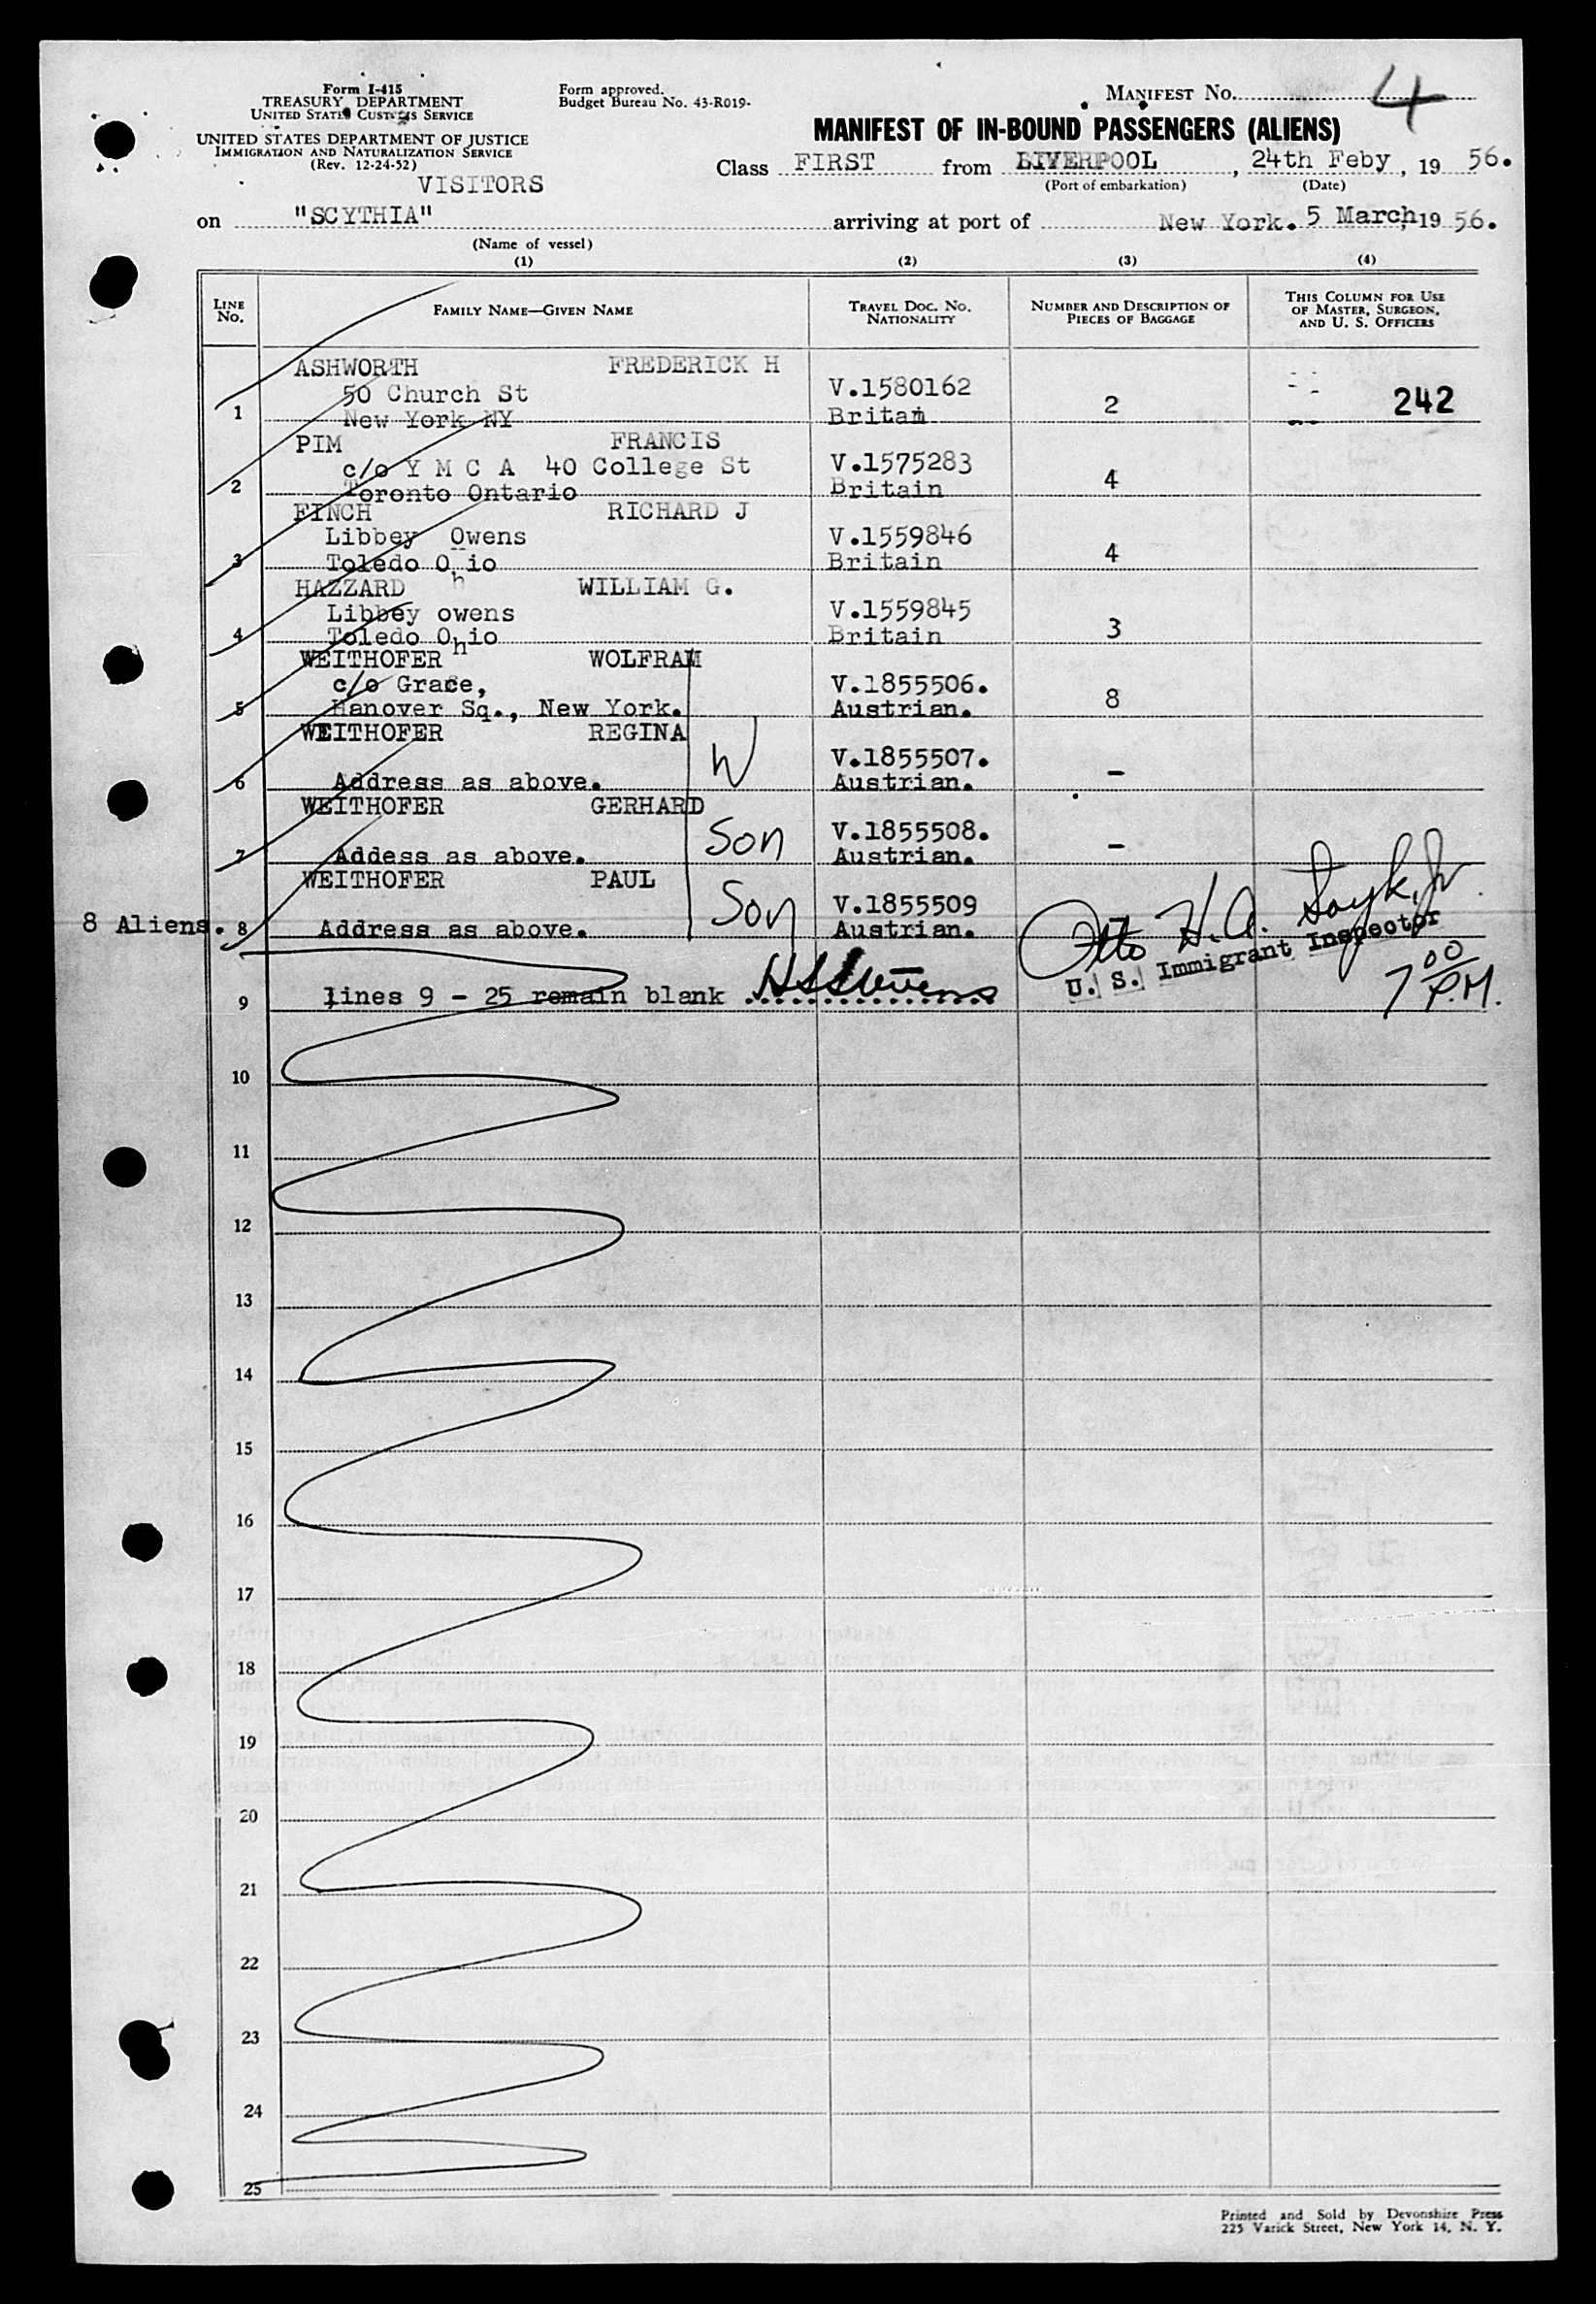 Form I-415
TREASURY DEPARTMENT
UNITED STATES CUSTOMS SERVICE
UNITED STATES DEPARTMENT OF JUSTICE
IMMIGRATION AND NATURALIZATION SERVICE
(Rev. 12-24-52)
Form approved.
Budget Bureau No. 43-R019-
MANIFEST NO. 4
MANIFEST OF IN-BOUND PASSENGERS (ALIENS)
Class FIRST from LIVERPOOL, 24th Feby, 19 56.
(Port of embarkation) (Date)
VISITORS
on "SCYTHIA" arriving at port of New York. 5 March, 19 56.
(Name of vessel)
(1) (2) (3) (4)
LINE NO. FAMILY NAME—GIVEN NAME TRAVEL DOC. NO. NATIONALITY NUMBER AND DESCRIPTION OF PIECES OF BAGGAGE THIS COLUMN FOR USE OF MASTER, SURGEON, AND U. S. OFFICERS
ASHWORTH FREDERICK H
50 Church St V.1580162
1 New York NY Britain 2 242
PIM FRANCIS
c/o Y M C A 40 College St V.1575283
2 Toronto Ontario Britain 4
FINCH RICHARD J
Libbey Owens V.1559846
3 Toledo Ohio Britain 4
HAZZARD WILLIAM G.
Libbey owens V.1559845
4 Toledo Ohio Britain 3
WEITHOFER WOLFRAM
c/o Grace, V.1855506.
5 Hanover Sq., New York. Austrian. 8
WEITHOFER REGINA W
V.1855507.
6 Address as above. Austrian. -
WEITHOFER GERHARD
Son V.1855508.
7 Addess as above. Austrian. -
WEITHOFER PAUL
Son V.1855509 -
8 Aliens. 8 Address as above. Austrian.
Otto H.A.
U. S. Immigrant Inspector
7 00 P.M.
9 lines 9 - 25 remain blank HSStevens
10
11
12
13
14
15
16
17
18
19
20
21
22
23
24
25
Printed and Sold by Devonshire Press
225 Varick Street, New York 14, N. Y.